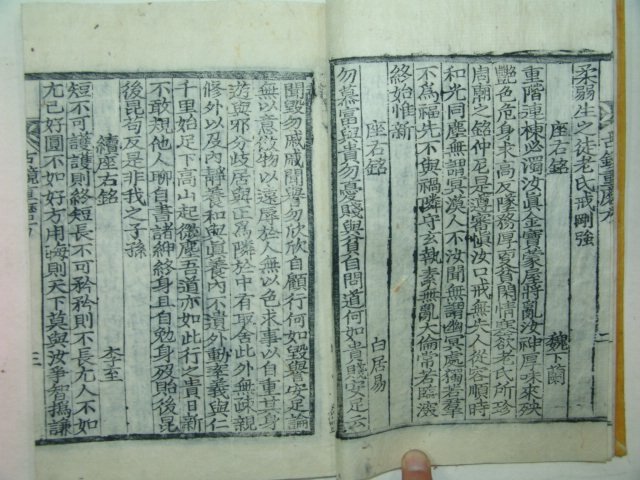 古鏡重磨方 二
柔弱生之徒老氏戒剛強
座右銘 魏卞蘭
重階連棟必濁汝眞金寶滿屋將亂汝神厚味來殃
艶色危身求高反墜務厚更貧閑情塞欲老氏所珍
周廟之銘仲尼是遵審愼汝口戒無失人從容順時
和光同塵無謂冥漠人不汝聞無謂幽冥處獨若羣
不爲福先不與禍隣守玄執素無亂大倫常若臨深
終始惟新
座右銘 白居易
勿慕富與貴勿憂賤與貧自問道何如貴賤安足云
聞毀勿戚戚聞譽勿欣欣自顧行何如毀譽安足論
無以意傲物以遠辱於人無以色求事以自重其身
遊與邪分歧居與正爲隣於中有取舍此外無疎親
修外以及內靜養和與眞養內不遺外動率義與仁
千里始足下高山起微塵吾道亦如此行之貴日新
不敢規他人聊自書諸紳終身且自勉身歿貽後昆
後昆苟反是非我之子孫
續座右銘 李至
短不可護護則終短長不可矜矜則不長尤人不如
尤己好圓不如好方用晦則天下莫與汝爭智撝謙
古鏡重磨方